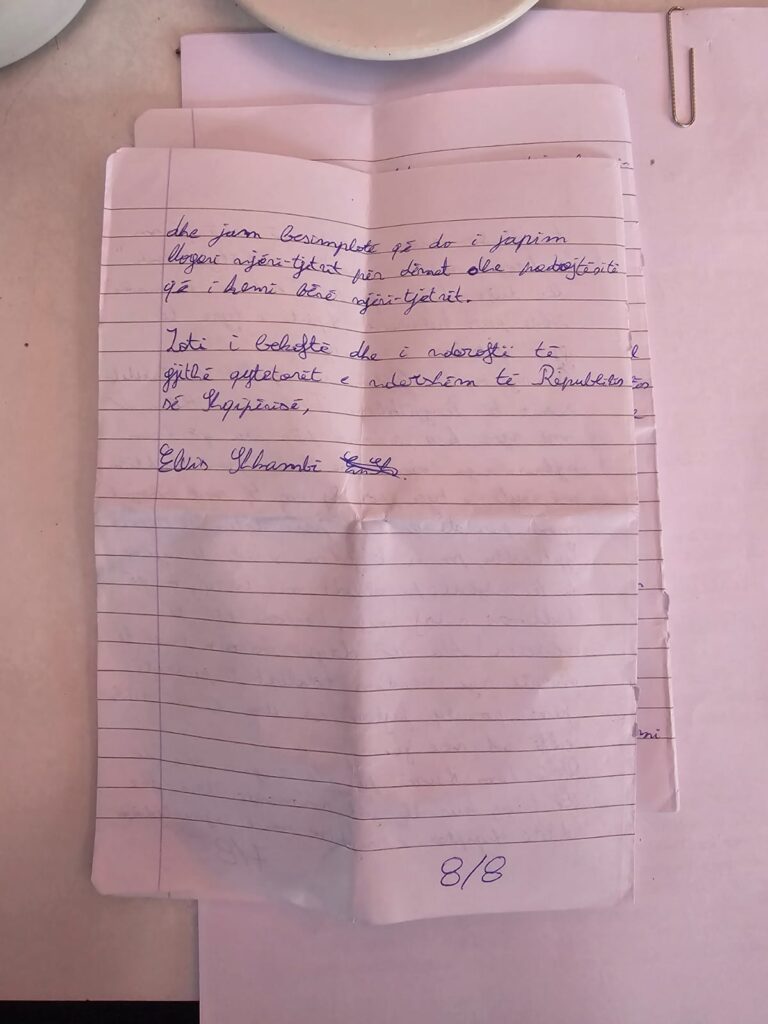 dhe jam besimplotë që do i japim
llogari njëri-tjetrit për dëmet dhe padrejtësitë
që i kemi bërë njëri-tjetrit.
Zoti i bekoftë dhe i nderoftë të
gjithë qytetarët e ndershëm të Republikës
së Shqipërisë,
Elvis Shkambi
8/8